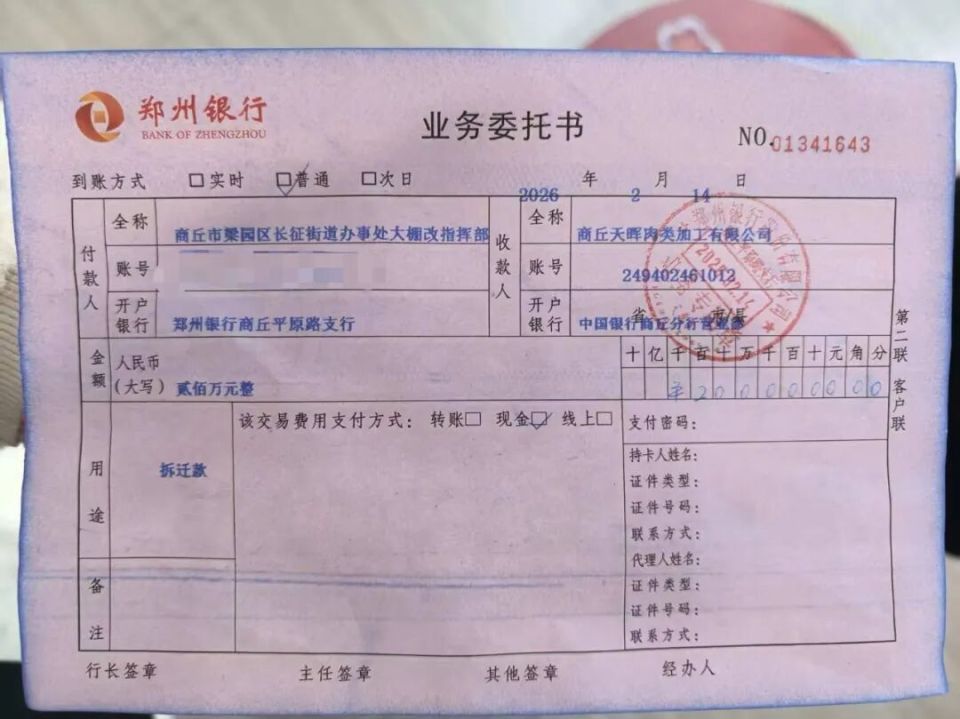 郑州银行
BANK OF ZHENGZHOU
业务委托书
NO.01341643
到账方式 □实时 □普通 □次日
2026年2月14日
付款人
全称 商丘市梁园区长征街道办事处大棚改指挥部
账号
开户银行 郑州银行商丘平原路支行
收款人
全称 商丘天晖肉类加工有限公司
账号 249402461012
开户银行 中国银行商丘分行营业部
省 市/县
金额 人民币(大写) 贰佰万元整
十亿千百十万千百十元角分
¥200000000
用途 拆迁款
该交易费用支付方式: 转账□ 现金□ 线上□
支付密码:
持卡人姓名:
证件类型:
证件号码:
联系方式:
代理人姓名:
证件类型:
证件号码:
联系方式:
备注
行长签章 主任签章 其他签章 经办人
第二联 客户联
郑州银行
2026.02.14